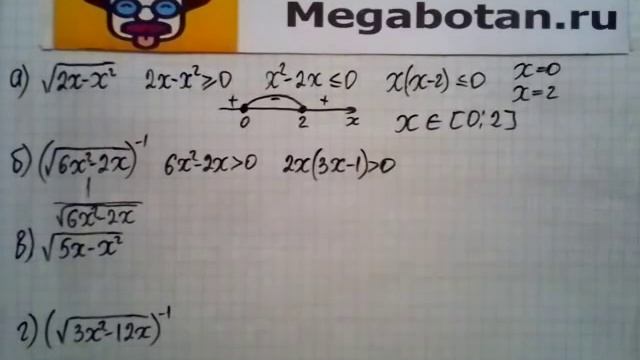 Megabotan.ru
а) √(2x-x²) 2x-x²≥0 x²-2x≤0 x(x-2)≤0 x=0
x=2
+ - +
0 2 x x∈[0;2]
б) (√(6x²-2x))⁻¹ 6x²-2x>0 2x(3x-1)>0
1
√(6x²-2x)
в) √(5x-x²)
г) (√(3x²-12x))⁻¹